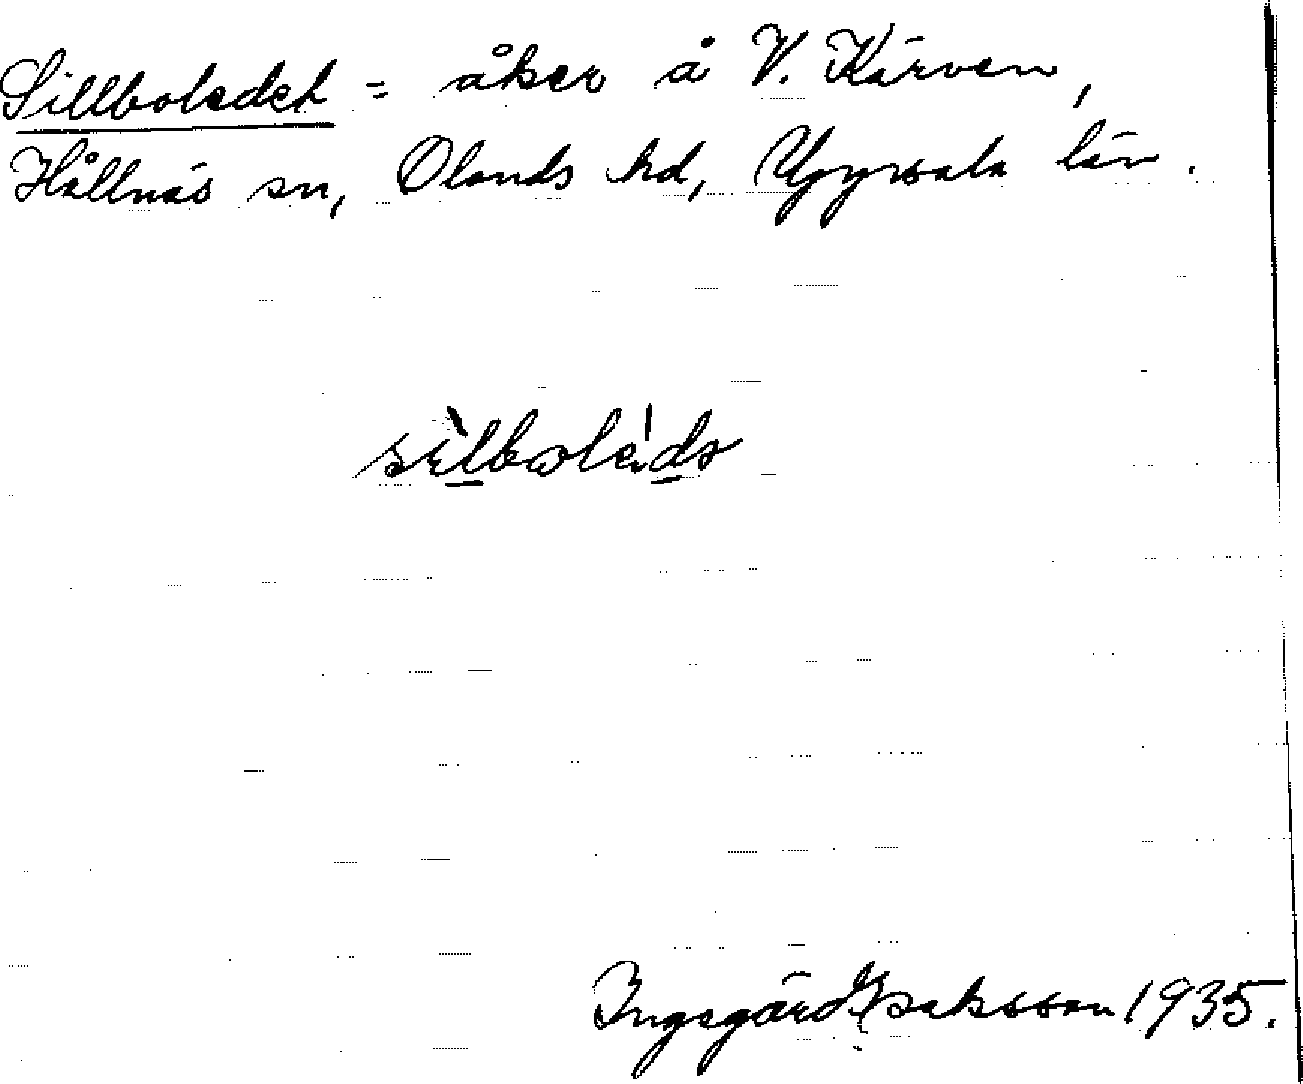 Sillboledet = åker å V. Kärven,
Hållnäs sn, Olands hd, Uppsala län.
Ingegärd Isaksson 1935.